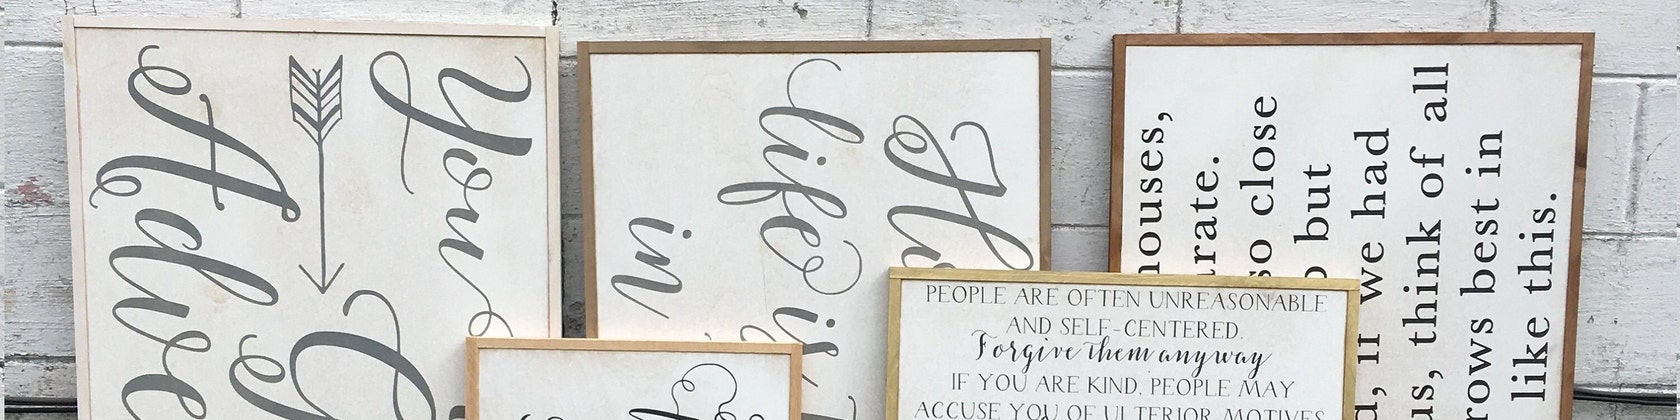 You
Adve
life is
in
houses,
rate.
so close
but
d, if we had
us, think of all
rows best in
like this.
PEOPLE ARE OFTEN UNREASONABLE
AND SELF-CENTERED.
Forgive them anyway
IF YOU ARE KIND, PEOPLE MAY
ACCUSE YOU OF ULTERIOR MOTIVES